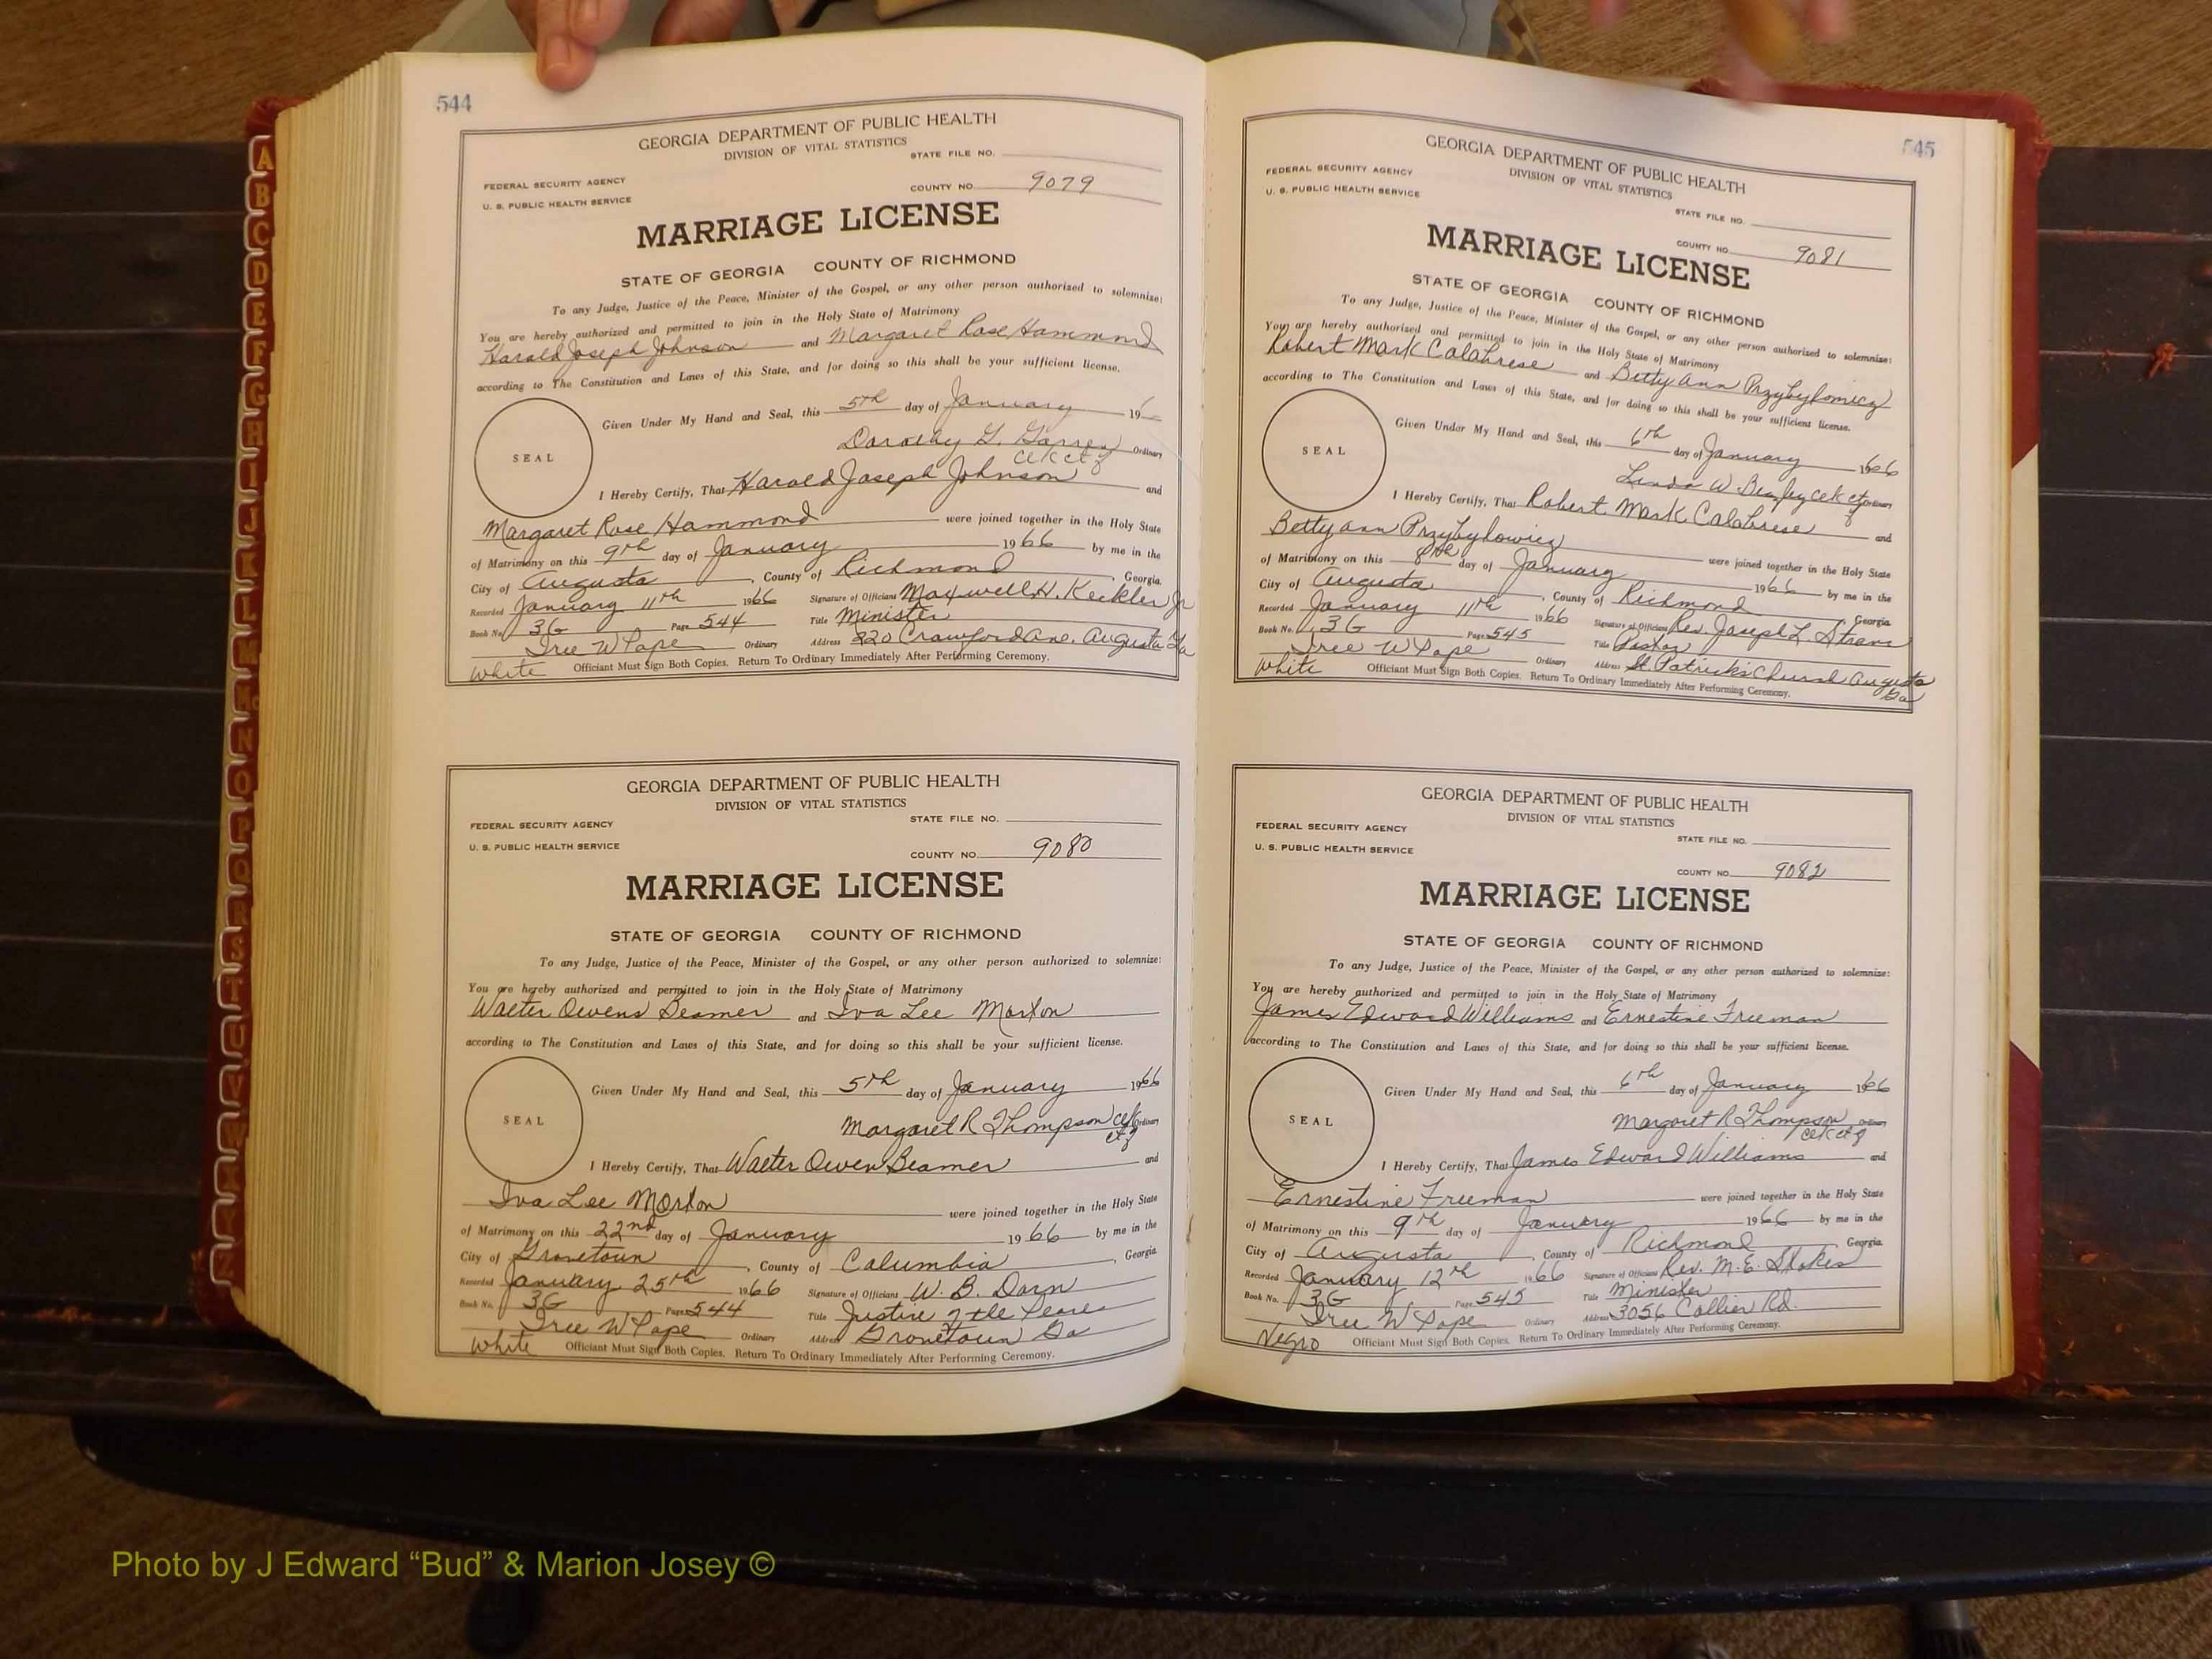 544
GEORGIA DEPARTMENT OF PUBLIC HEALTH
DIVISION OF VITAL STATISTICS
STATE FILE NO.
FEDERAL SECURITY AGENCY
U. S. PUBLIC HEALTH SERVICE
COUNTY NO. 9079
MARRIAGE LICENSE
STATE OF GEORGIA COUNTY OF RICHMOND
To any Judge, Justice of the Peace, Minister of the Gospel, or any other person authorized to solemnize:
You are hereby authorized and permitted to join in the Holy State of Matrimony
Harald Joseph Johnson and Margaret Rose Hammond
according to The Constitution and Laws of this State, and for doing so this shall be your sufficient license.
Given Under My Hand and Seal, this 5th day of January 196
SEAL
Dorothy G. Garren Ordinary
clk ct of
I Hereby Certify, That Harald Joseph Johnson and
Margaret Rose Hammond were joined together in the Holy State
of Matrimony on this 9th day of January 1966 by me in the
City of Augusta, County of Richmond, Georgia.
Recorded January 11th 1966 Signature of Officiant Maxwell H. Keckler Jr
Book No. 3G Page 544 Title Minister
Iree W Pope Ordinary Address 820 Crawford Ave. Augusta Ga
White Officiant Must Sign Both Copies. Return To Ordinary Immediately After Performing Ceremony.
GEORGIA DEPARTMENT OF PUBLIC HEALTH
DIVISION OF VITAL STATISTICS
STATE FILE NO.
FEDERAL SECURITY AGENCY
U. S. PUBLIC HEALTH SERVICE
COUNTY NO. 9080
MARRIAGE LICENSE
STATE OF GEORGIA COUNTY OF RICHMOND
To any Judge, Justice of the Peace, Minister of the Gospel, or any other person authorized to solemnize:
You are hereby authorized and permitted to join in the Holy State of Matrimony
Walter Owens Beamer and Iva Lee Morton
according to The Constitution and Laws of this State, and for doing so this shall be your sufficient license.
Given Under My Hand and Seal, this 5th day of January 1966
SEAL
Margaret R Thompson clk Ordinary
ct of
I Hereby Certify, That Walter Owen Beamer and
Iva Lee Morton were joined together in the Holy State
of Matrimony on this 22nd day of January 1966 by me in the
City of Grovetown, County of Columbia, Georgia
Recorded January 25th 1966 Signature of Officiant W. B. Dorn
Book No. 3G Page 544 Title Justice of the Peace
Iree W Pope Ordinary Address Grovetown Ga
White Officiant Must Sign Both Copies. Return To Ordinary Immediately After Performing Ceremony.
545
GEORGIA DEPARTMENT OF PUBLIC HEALTH
DIVISION OF VITAL STATISTICS
FEDERAL SECURITY AGENCY
U. S. PUBLIC HEALTH SERVICE
STATE FILE NO.
COUNTY NO. 9081
MARRIAGE LICENSE
STATE OF GEORGIA COUNTY OF RICHMOND
To any Judge, Justice of the Peace, Minister of the Gospel, or any other person authorized to solemnize:
You are hereby authorized and permitted to join in the Holy State of Matrimony
Robert Mark Calabrese and Betty Ann Przybylowicz
according to The Constitution and Laws of this State, and for doing so this shall be your sufficient license.
Given Under My Hand and Seal, this 6th day of January 1966
SEAL
Linda W clk ct of Ordinary
I Hereby Certify, That Robert Mark Calabrese and
Betty Ann Przybylowicz were joined together in the Holy State
of Matrimony on this 8th day of January 1966 by me in the
City of Augusta, County of Richmond, Georgia
Recorded January 11th 1966 Signature of Officiant Rev. Joseph L.
Book No. 3G Page 545 Title Pastor
Iree W Pope Ordinary Address St. Patrick's Church Augusta
Ga
White Officiant Must Sign Both Copies. Return To Ordinary Immediately After Performing Ceremony.
GEORGIA DEPARTMENT OF PUBLIC HEALTH
DIVISION OF VITAL STATISTICS
FEDERAL SECURITY AGENCY
U. S. PUBLIC HEALTH SERVICE
STATE FILE NO.
COUNTY NO. 9082
MARRIAGE LICENSE
STATE OF GEORGIA COUNTY OF RICHMOND
To any Judge, Justice of the Peace, Minister of the Gospel, or any other person authorized to solemnize:
You are hereby authorized and permitted to join in the Holy State of Matrimony
James Edward Williams and Ernestine Freeman
according to The Constitution and Laws of this State, and for doing so this shall be your sufficient license.
Given Under My Hand and Seal, this 6th day of January 1966
SEAL
Margaret R Thompson Ordinary
clk ct of
I Hereby Certify, That James Edward Williams and
Ernestine Freeman were joined together in the Holy State
of Matrimony on this 9th day of January 1966 by me in the
City of Augusta, County of Richmond, Georgia.
Recorded January 12th 1966 Signature of Officiant Rev. M. E. Stokes
Book No. 3G Page 545 Title Minister
Iree W Pope Ordinary Address 3056 Collier Rd.
Negro Officiant Must Sign Both Copies. Return To Ordinary Immediately After Performing Ceremony.
A
B
C
D
E
F
G
H
I
J
K
L
M
Mc
N
O
P
Q
R
S
T
U
V
W
X
Y
Z
Photo by J Edward “Bud” & Marion Josey ©